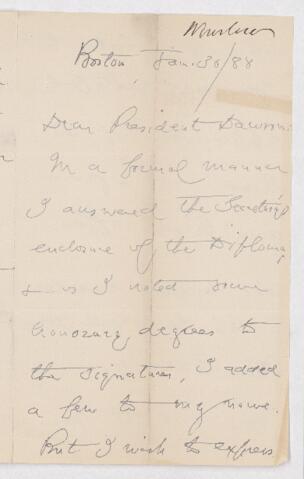 Winslow
Boston Jan. 30/88
Dear President Dawson:
In a formal manner
I answered the Secretary's
enclosure of the Diploma,
& as I noted some
honorary degrees to
the signatures, I added
a few to my name.
But I wish to express